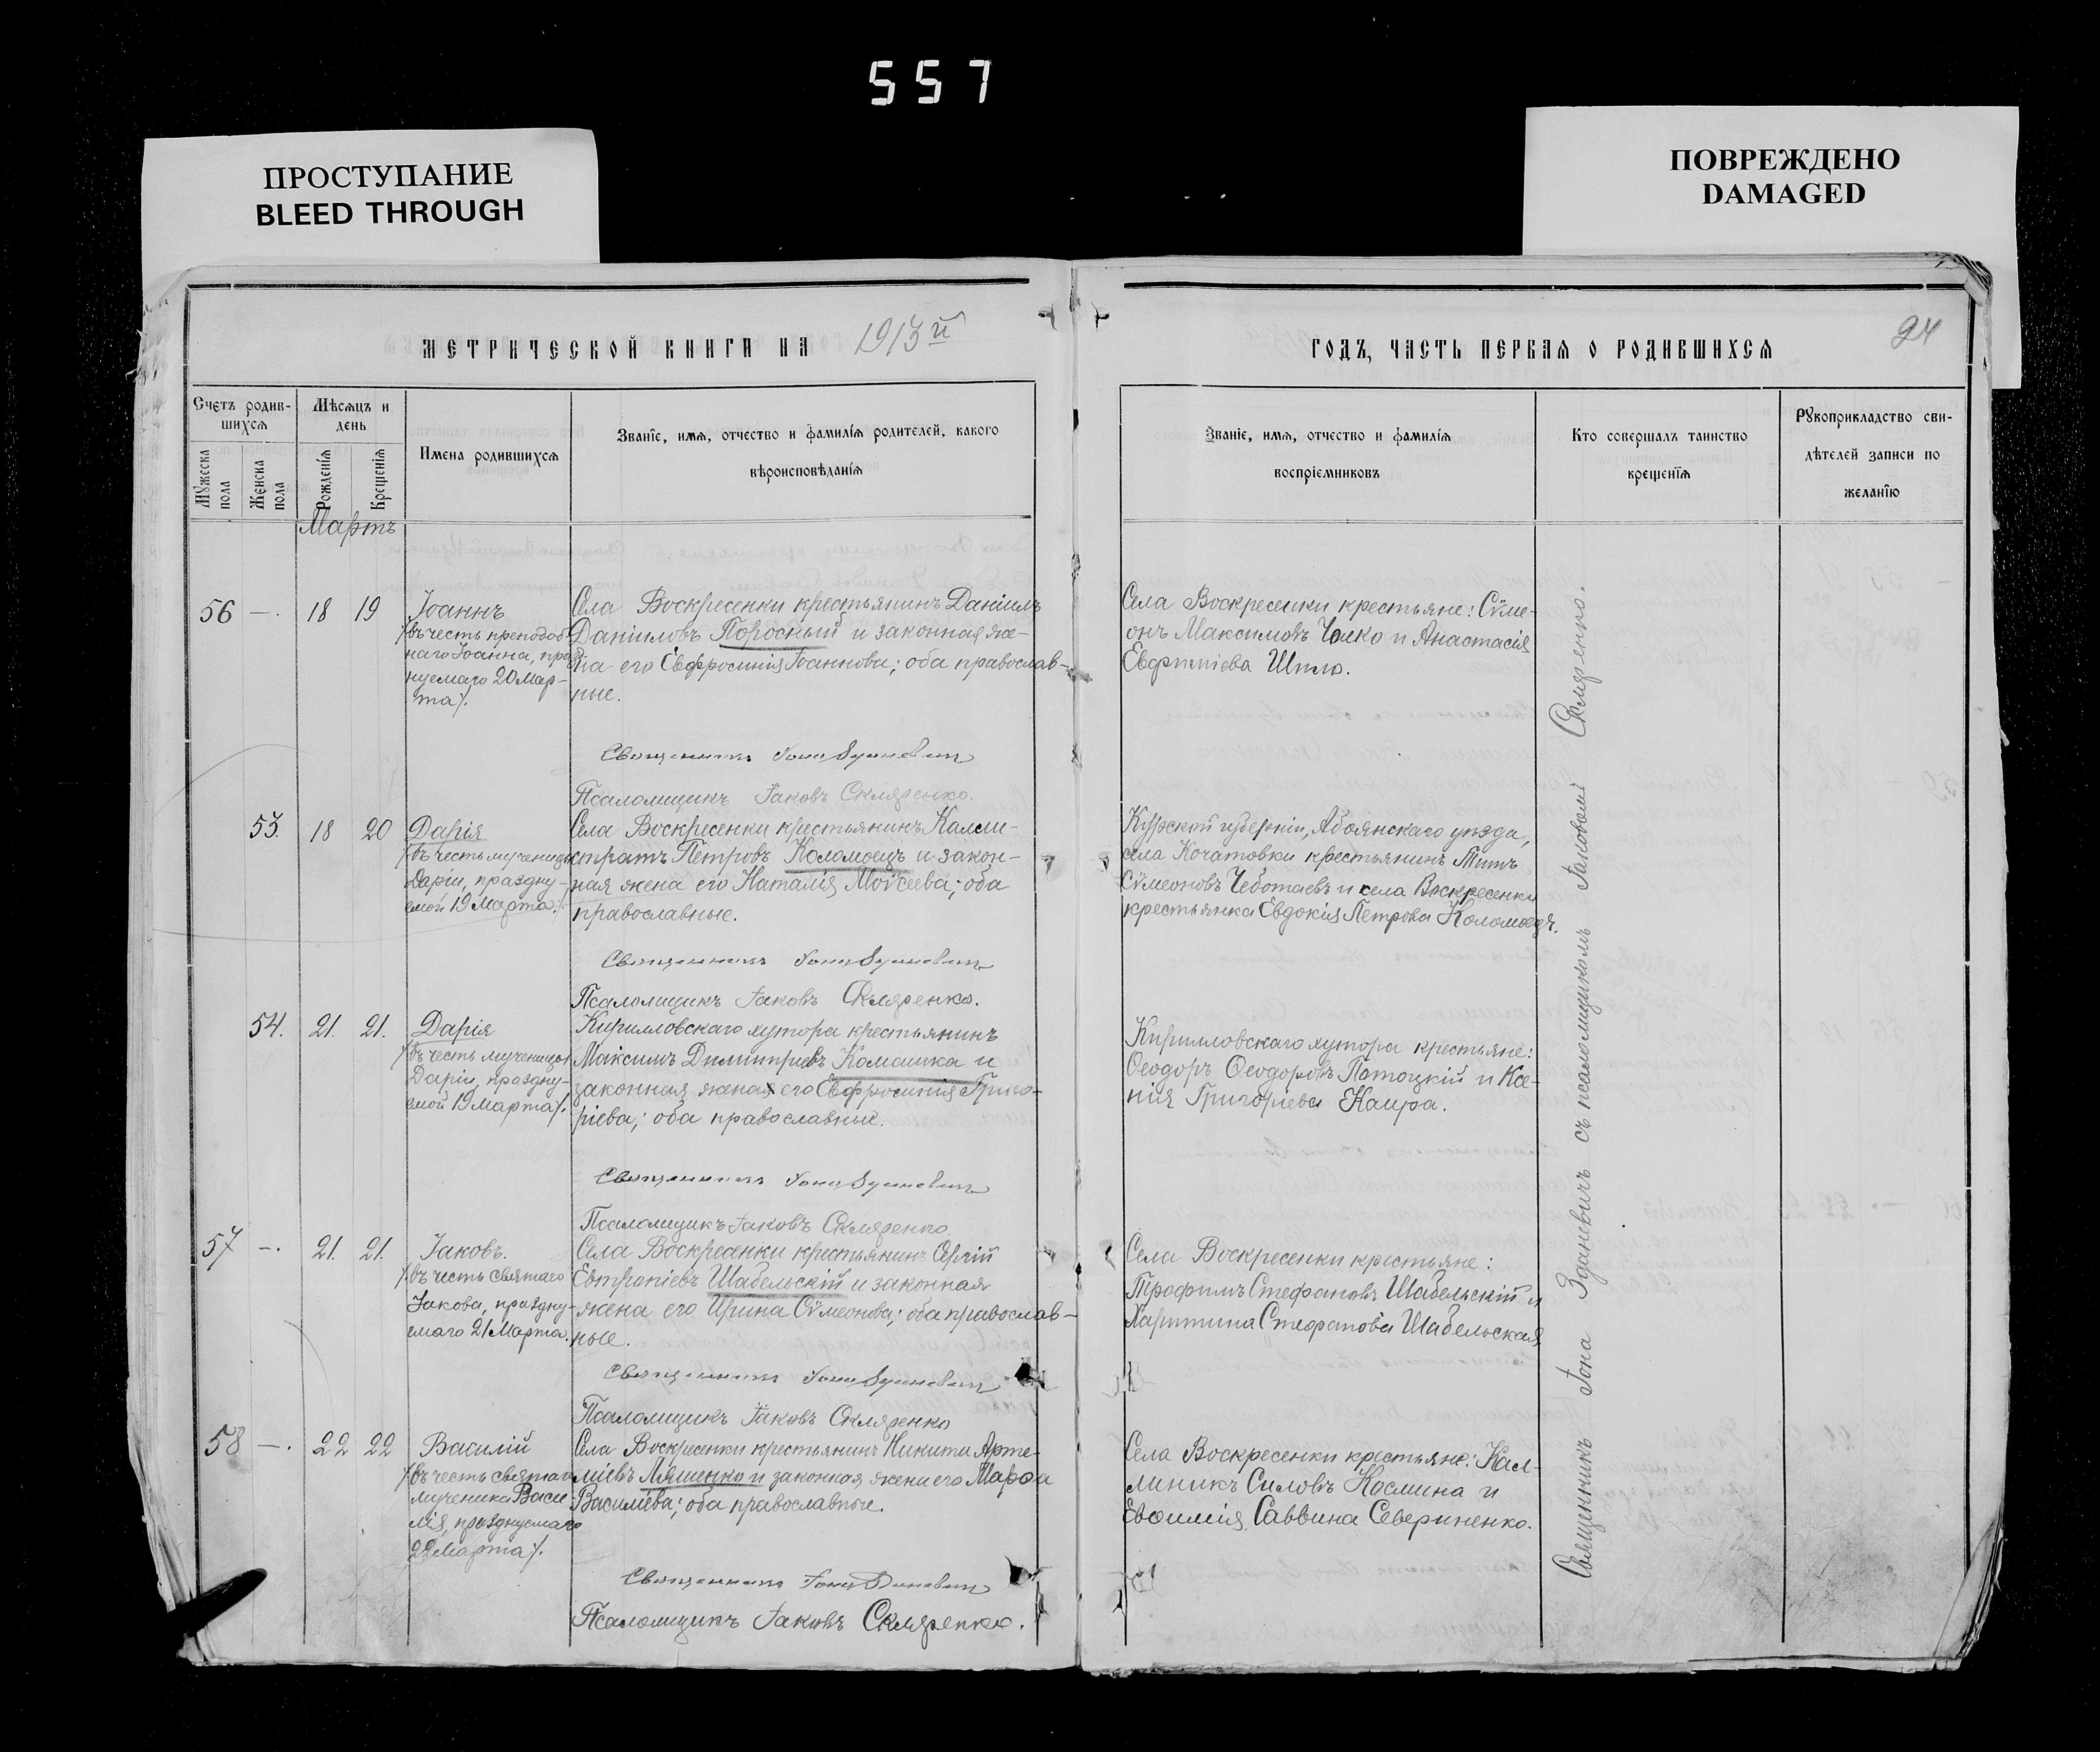 557
ПРОСТУПАНИЕ
BLEED THROUGH
ПОВРЕЖДЕНО
DAMAGED
МЕТРИЧЕСКОЙ КНИГИ НА 1913й
ГОДЪ, ЧАСТЬ ПЕРВАЯ О РОДИВШИХСЯ
24
Счетъ родив-
шихся
Мѣсяцъ и
день
Мужеска
пола
Женска
пола
Рожденія
Крещенія
Имена родившихся
Званіе, имя, отчество и фамилія родителей, какого
вѣроисповѣданія
Званіе, имя, отчество и фамилія
воспріемниковъ
Кто совершалъ таинство
крещенія
Рукоприкладство сви-
дѣтелей записи по
желанію
Мартъ
56 — 18 19
Іоаннъ
/въ честь преподоб-
наго Іоанна, празд-
нуемаго 20 Мар-
та/.
Села Воскресенки крестьянинъ Даніилъ
Данііловъ Поросный и законная же-
на его Евфросинія Іоаннова; оба православ-
ные.
Священникъ Іона Зданевичъ
Псаломщикъ Іаковъ Скляренко.
Села Воскресенки крестьяне: Сѵме-
онъ Максимовъ и Анастасія
Евфиміева Шило.
53. 18 20
Дарія
/въ честь мученицы
Даріи, праздну-
емой 19 Марта/.
Села Воскресенки крестьянинъ Калли-
стратъ Петровъ Коломоецъ и закон-
ная жена его Наталія Моѵсеева; оба
православные.
Священникъ Іона Зданевичъ
Псаломщикъ Іаковъ Скляренко.
Курской губерніи, Абоянскаго уѣзда,
села Кочатовки крестьянинъ Титъ
Сѵмеоновъ Чеботаевъ и села Воскресенки
крестьянка Евдокія Петрова Коломоецъ.
54. 21. 21.
Дарія
/въ честь мученицы
Даріи, праздну-
емой 19 Марта/.
Кирилловскаго хутора крестьянинъ
Максимъ Димитріевъ Комашка и
законная жена его Евфросинія Григо-
ріева; оба православные.
Священникъ Іона Зданевичъ
Псаломщикъ Іаковъ Скляренко
Кирилловскаго хутора крестьяне:
Ѳеодоръ Ѳеодоровъ Потоцкій и Ксе-
нія Григоріева
57 — 21. 21.
Іаковъ.
/въ честь святаго
Іакова, праздну-
емаго 21 Марта.
Села Воскресенки крестьянинъ Сергій
Евтропіевъ Шабельскій и законная
жена его Ирина Сѵмеонова; оба православ-
ные.
Священникъ Іона Зданевичъ
Псаломщикъ Іаковъ Скляренко
Села Воскресенки крестьяне:
Трофимъ Стефановъ Шабельскій и
Харитина Стефанова Шабельская
58 — 22 22
Василій
/въ честь святаго
мученика Васи-
лія, празднуемаго
22 Марта/.
Села Воскресенки крестьянинъ Никита Арте-
міевъ Ляшенко и законная жена его Марѳа
Василіева; оба православные.
Священникъ Іона Зданевичъ
Псаломщикъ Іаковъ Скляренко.
Села Воскресенки крестьяне: Кал-
линикъ Силовъ Космина и
Евѳимія Саввина Севериненко.
Священникъ Іона Зданевичъ съ псаломщикомъ Іаковомъ Скляренко.